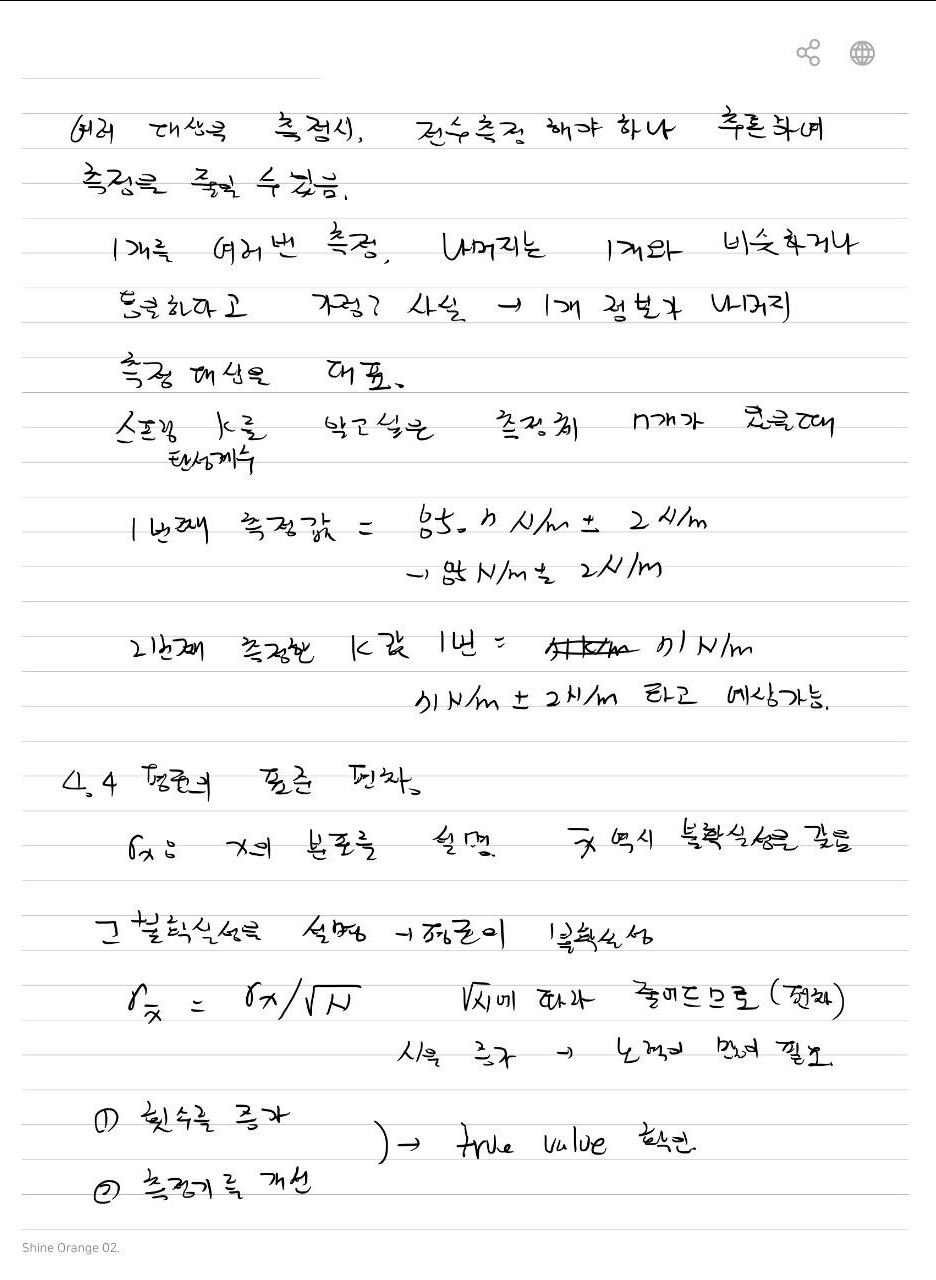 여러 대상을 측정시, 전수측정 해야 하나 추론하여
측정을 줄일 수 있음.
1개를 여러번 측정, 나머지는 1개와 비슷하거나
동일하다고 가정? 사실 → 1개 정보가 나머지
측정 대상을 대표.
스프링 k를 알고싶은 측정치 n개가 있을때
탄성계수
1번째 측정값 = 85.7 N/m ± 2 N/m
→ 86 N/m ± 2 N/m
2번째 측정한 k값 1번 = 71 N/m
71 N/m ± 2 N/m 라고 예상가능.
4.4 평균의 표준 편차.
σx : x의 분포를 설명. x̄ 역시 불확실성을 갖음
그 불확실성을 설명 → 평균이 불확실성
σx̄ = σx/√N √N에 따라 줄어드므로 (편차)
시은 증가 → 노력이 많이 필요.
① 횟수를 증가
) → true value 확인.
② 측정기를 개선
Shine Orange 02.